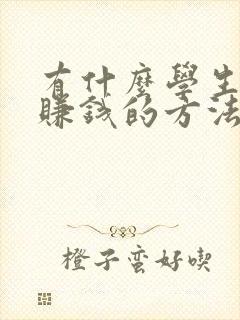 有什麼學生
賺錢的方法
橙子蛮好喫